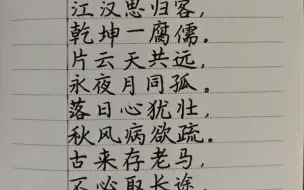 江汉思归客，
乾坤一腐儒。
片云天共远，
永夜月同孤。
落日心犹壮，
秋风病欲疏。
古来存老马，
不必取长途